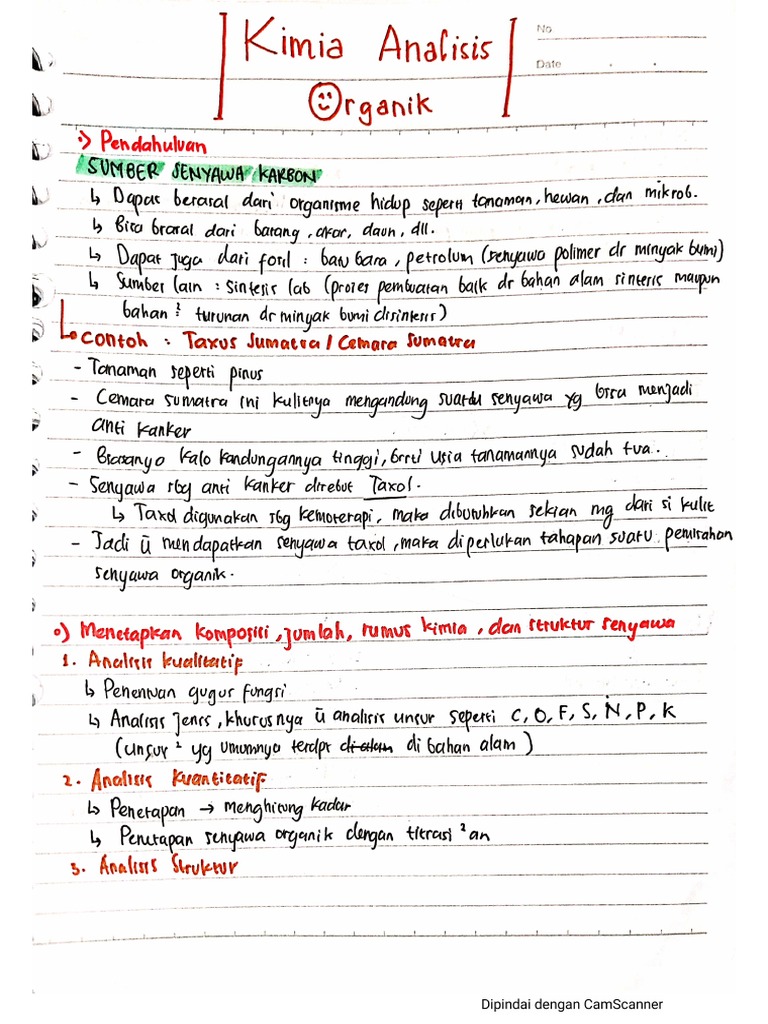 Kimia Analisis
Organik
No
Date . .
•) Pendahuluan
SUMBER SENYAWA KARBON
↳ Dapat berasal dari organisme hidup seperti tanaman, hewan, dan mikrob.
↳ Bisa brasal dari batang, akar, daun, dll.
↳ Dapat juga dari fosil : batu bara, petrolum (senyawa polimer dr minyak bumi)
↳ Sumber lain : Sintesis lab (proses pembuatan baik dr bahan alam sintesis maupun
bahan² turunan dr minyak bumi disintesis)
↳ Contoh : Taxus Sumatra / Cemara Sumatra
- Tanaman seperti pinus
- Cemara sumatra ini kulitnya mengandung suatu senyawa yg bisa menjadi
anti kanker
- Biasanya kalo kandungannya tinggi, brrti usia tanamannya sudah tua.
- Senyawa sbg anti kanker disebut Taxol.
↳ Taxol digunakan sbg kemoterapi, maka dibutuhkan sekian mg dari si kulit
- Jadi ū mendapatkan senyawa taxol, maka diperlukan tahapan suatu pemisahan
senyawa organik.
•) Menetapkan komposisi, jumlah, rumus kimia, dan struktur senyawa
1. Analisis kualitatif
↳ Penentuan gugus fungsi
↳ Analisis jenis, khususnya ū analisis unsur seperti C, O, F, S, N, P, K
(unsur² yg umumnya terdpt di alam di bahan alam)
2. Analisis Kuantitatif
↳ Penetapan → menghitung kadar
↳ Penetapan senyawa organik dengan titrasi²an
3. Analisis Struktur
Dipindai dengan CamScanner